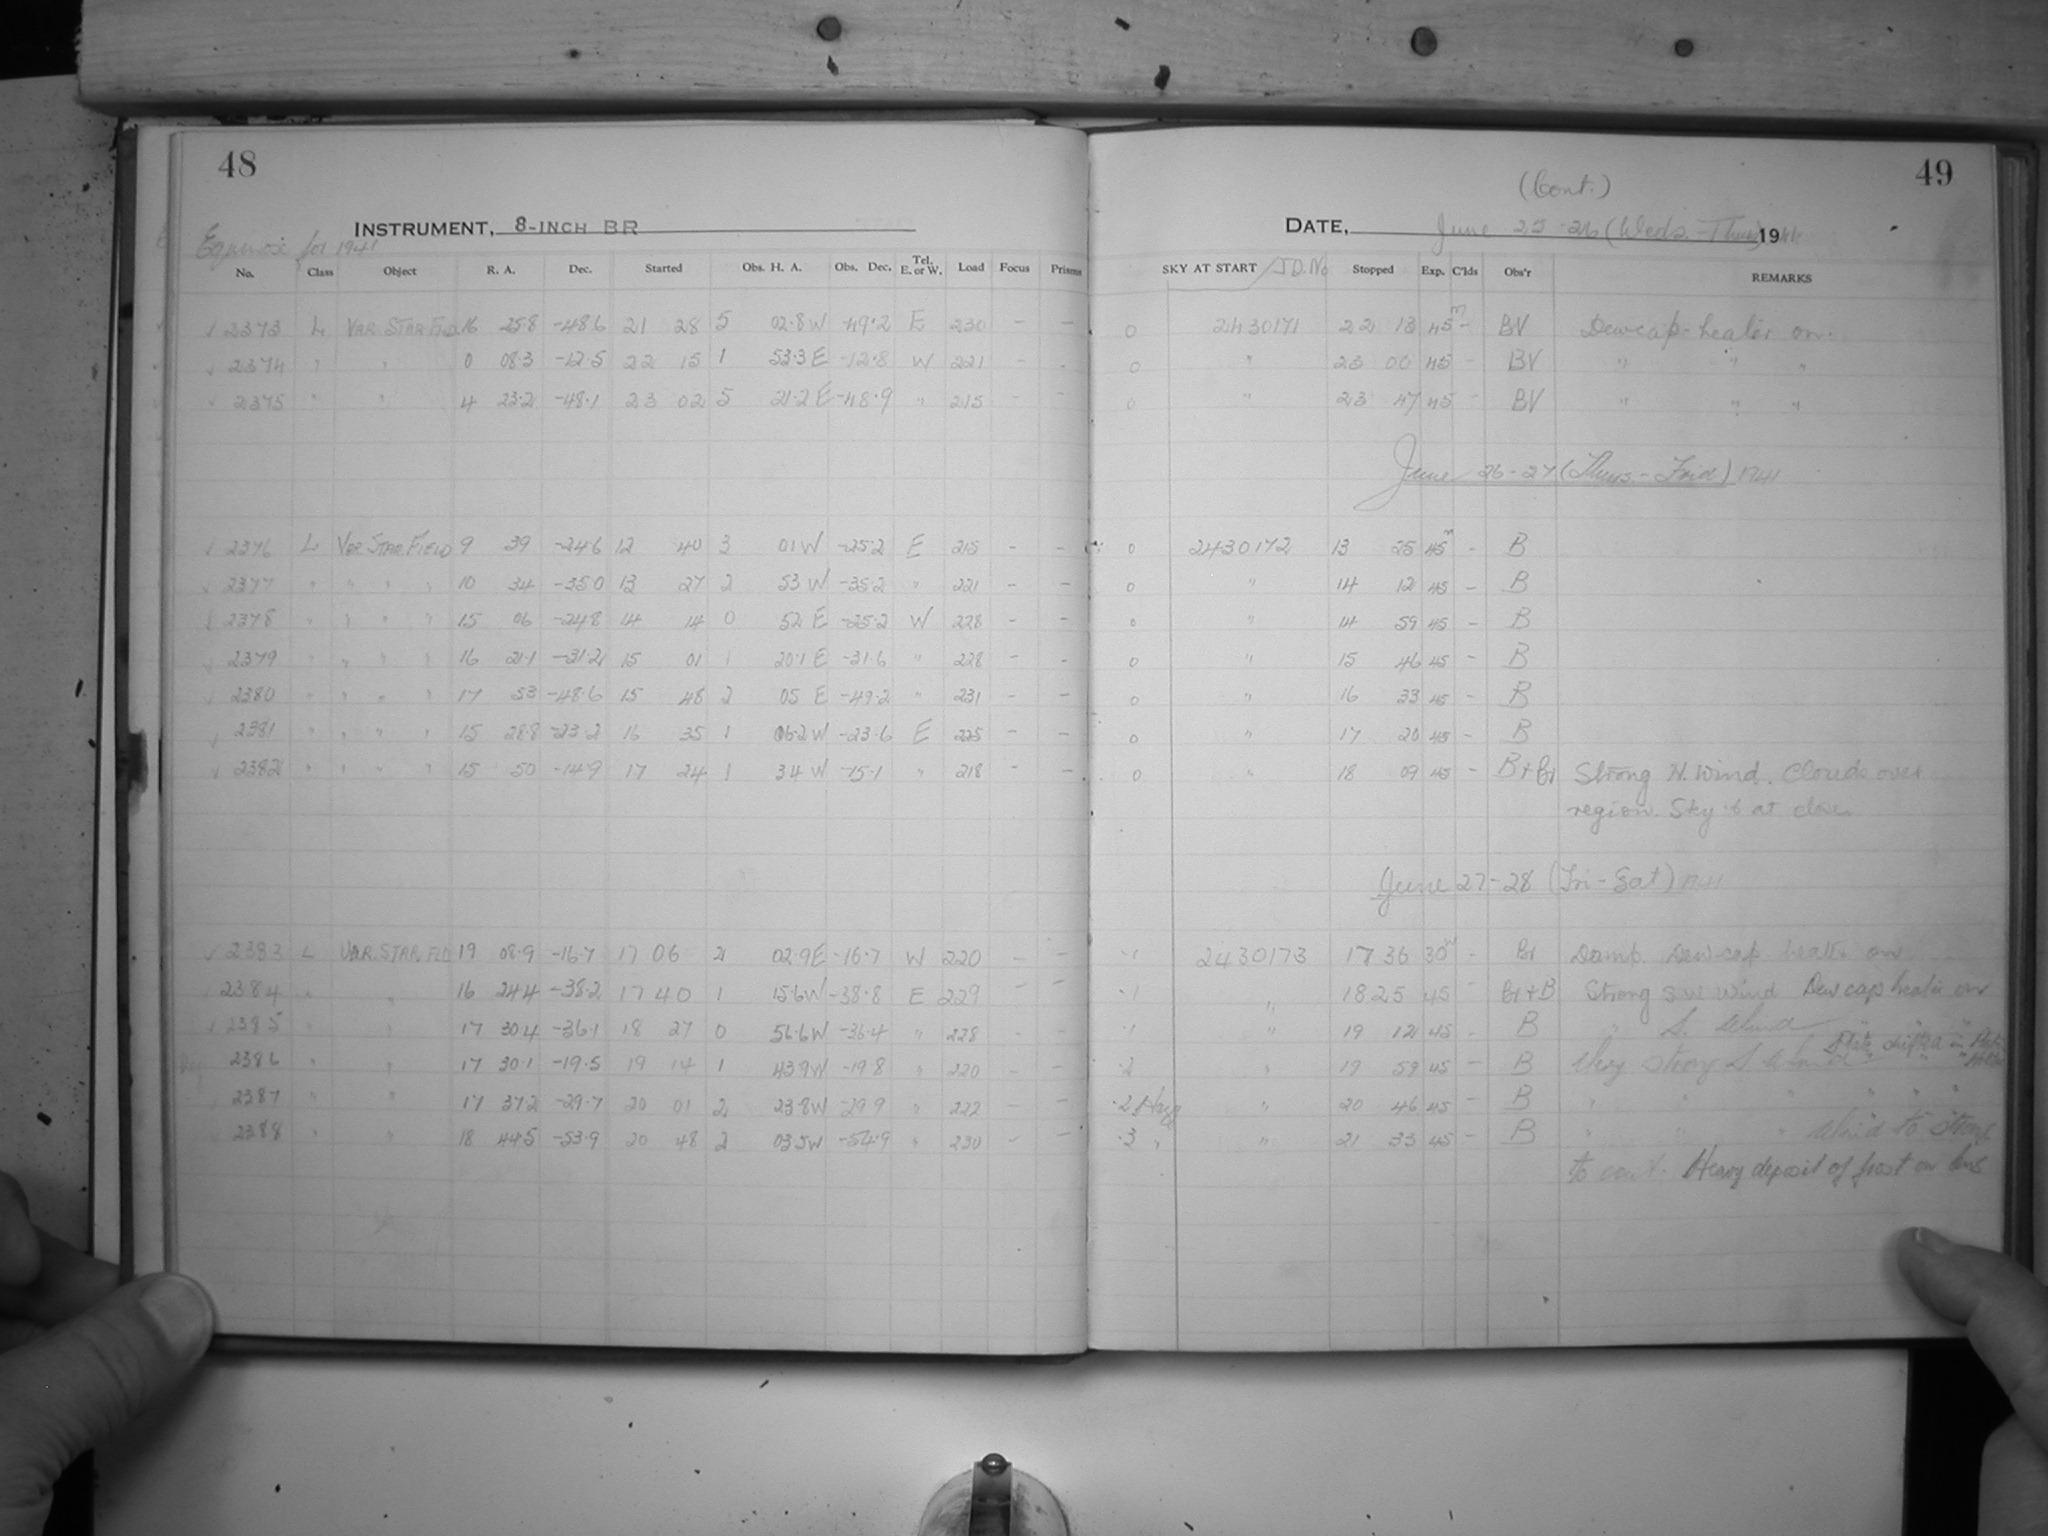 48
INSTRUMENT, 8-INCH BR
Equinox for 1941
No. Class Object R. A. Dec. Started Obs. H. A. Obs. Dec. Tel. E. or W. Load Focus Prisms
2373 L VAR. STAR FLD. 16 25.8 -48.6 21 28 5 02.8 W -49.2 E 230 - -
2374 " " 0 08.3 -12.5 22 15 1 53.3 E -12.8 W 221 - -
2375 " " 4 23.2 -48.1 23 02 5 21.2 E -48.9 " 215 - -
2376 L VAR. STAR. FIELD 9 39 -24.6 12 40 3 01 W -25.2 E 215 - -
2377 " " " " 10 34 -35.0 13 27 2 53 W -35.2 " 221 - -
2378 " " " " 15 06 -24.8 14 14 0 52 E -25.2 W 228 - -
2379 " " " " 16 21.1 -31.2 15 01 1 20.1 E -31.6 " 228 - -
2380 " " " " 17 53 -48.6 15 48 2 05 E -49.2 " 231 - -
2381 " " " " 15 28.8 -23.2 16 35 1 06.2 W -23.6 E 225 - -
2382 " " " " 15 50 -14.9 17 24 1 34 W -15.1 " 218 - -
2383 L VAR. STAR. FLD 19 08.9 -16.7 17 06 2 02.9 E -16.7 W 220 - -
2384 " " 16 24.4 -38.2 17 40 1 15.6 W -38.8 E 229 - -
2385 " " 17 30.4 -36.1 18 27 0 56.6 W -36.4 " 228 - -
2386 " " 17 30.1 -19.5 19 14 1 43.9 W -19.8 " 220 - -
2387 " " 17 37.2 -29.7 20 01 2 23.8 W -29.9 " 222 - -
2388 " " 18 44.5 -53.9 20 48 2 03.5 W -54.9 " 230 - -
49
(Cont.)
DATE, June 25-26 (Weds.-Thurs) 1941
SKY AT START J.D. No Stopped Exp. C'lds Obs'r REMARKS
0 2430171 22 13 45m - BV Dewcap-heater on.
0 " 23 00 45 - BV " " "
0 " 23 47 45 - BV " " "
June 26-27 (Thurs.-Frid) 1941
0 2430172 13 25 45m - B
0 " 14 12 45 - B
0 " 14 59 45 - B
0 " 15 46 45 - B
0 " 16 33 45 - B
0 " 17 20 45 - B
0 " 18 09 45 - B + Br Strong N. Wind. Clouds over
region. Sky .6 at close.
June 27-28 (Fri-Sat) 1941
.1 2430173 17 36 30m - Br Damp. Dew-cap heater on
.1 " 18 25 45 - Br + B Strong S.W. Wind Dew cap heater on
.1 " 19 12 45 - B " S. Wind " "
.2 " 19 59 45 - B Very strong S Wind Plate shifted in Plate Holder
.2 Haze " 20 46 45 - B " " " " "
.3 " " 21 33 45 - B " " " Wind to strong
to cont. Heavy deposit of frost on lens